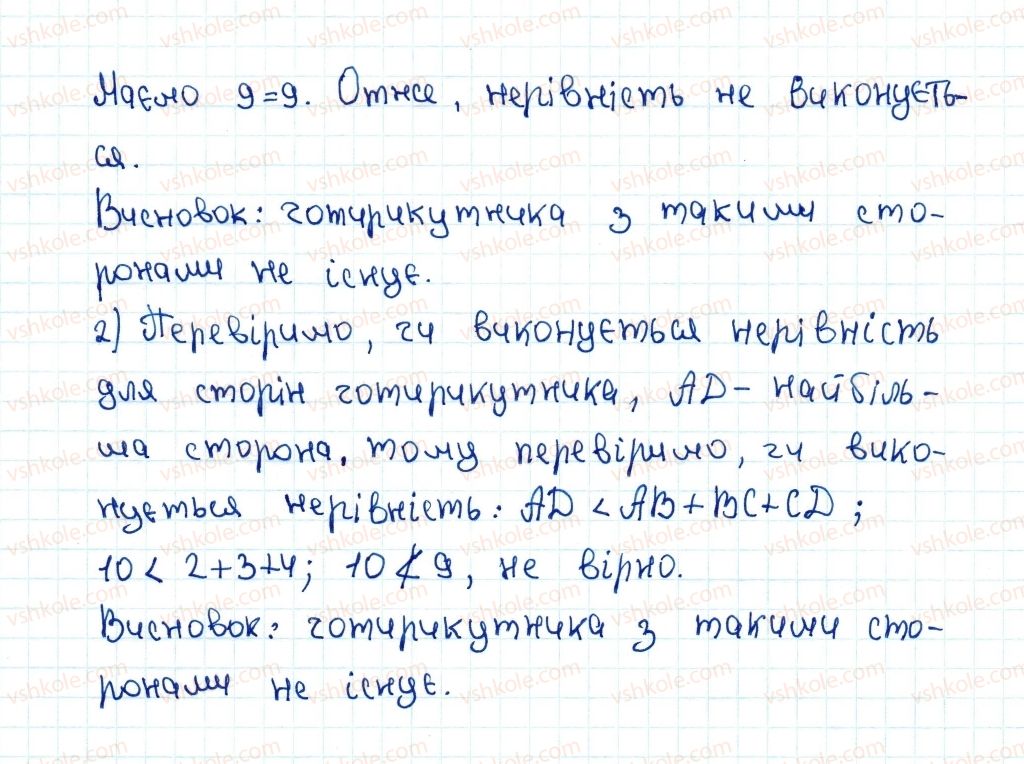 Маємо 9=9. Отже, нерівність не виконуєть-
ся.
Висновок: чотирикутника з такими сто-
ронами не існує.
2) Перевіримо, чи виконується нерівність
для сторін чотирикутника, AD - найбіль-
ша сторона, тому перевіримо, чи вико-
нується нерівність: AD < AB + BC + CD;
10 < 2+3+4; 10 ≮ 9, не вірно.
Висновок: чотирикутника з такими сто-
ронами не існує.